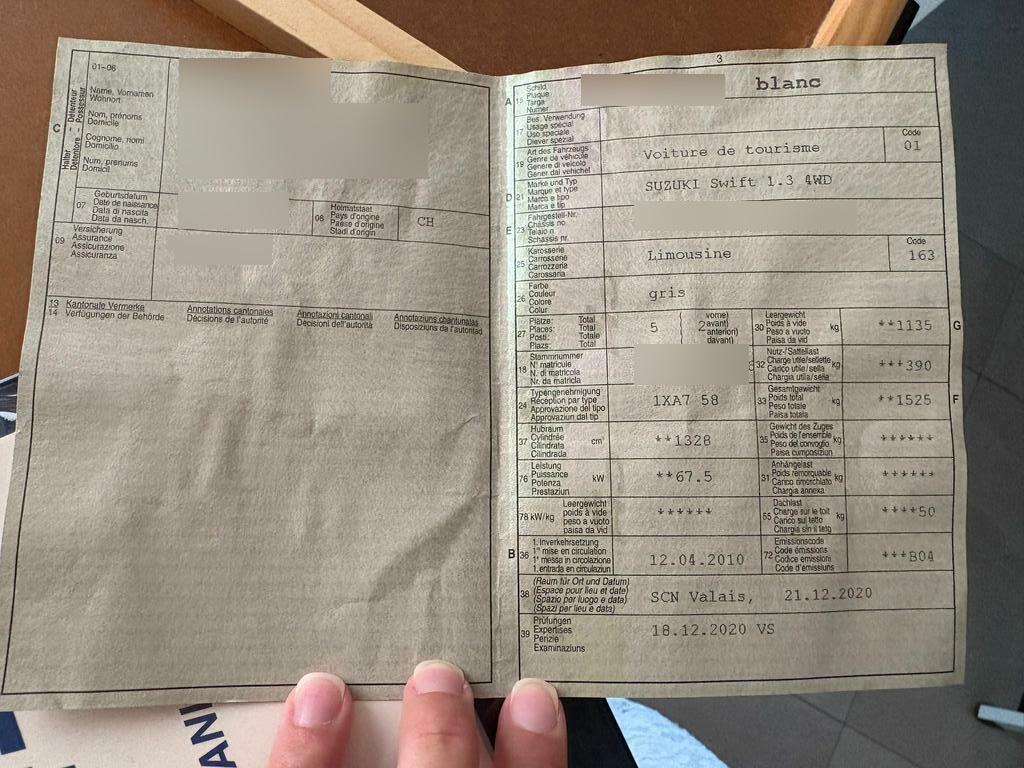 01–06
Halter – Détenteur
Detentore – Possessur
C
Name, Vornamen
Wohnort
Nom, prénoms
Domicile
Cognome, nomi
Domicilio
Num, prenums
Domicil
07
Geburtsdatum
Date de naissance
Data di nascita
Data da nasch.
08
Heimatstaat
Pays d'origine
Paese d'origine
Stadi d'origin
CH
09
Versicherung
Assurance
Assicurazione
Assicuranza
13
14
Kantonale Vermerke
Verfügungen der Behörde
Annotations cantonales
Décisions de l'autorité
Annotazioni cantonali
Decisioni dell'autorità
Annotaziuns chantunalas
Disposiziuns da l'autoritad
3
A
Schild
Plaque
Targa
Numer
blanc
17
Bes. Verwendung
Usage spécial
Uso speciale
Diever spezial
19
Art des Fahrzeugs
Genre de véhicule
Genere di veicolo
Gener dal vehichel
Voiture de tourisme
Code
01
D
21
Marke und Typ
Marque et type
Marca e tipo
Marca e tip
SUZUKI Swift 1.3 4WD
E
23
Fahrgestell-Nr.
Châssis no
Telaio n
Schassis nr.
25
Karosserie
Carrosserie
Carrozzeria
Carossaria
Limousine
Code
163
26
Farbe
Couleur
Colore
Colur
gris
27
Plätze: Total
Places: Total
Posti: Totale
Plazs: Total
5
2
vorne)
avant)
anteriori)
davant)
30
Leergewicht
Poids à vide
Peso a vuoto
Paisa da vid
kg
**1135
G
18
Stammnummer
N° matricule
N. di matricola
Nr. da matricla
32
Nutz-/Sattellast
Charge utile/sellette
Carico utile/sella
Chargia utila/sella
kg
***390
24
Typengenehmigung
Réception par type
Approvazione del tipo
Approvaziun dal tip
1XA7 58
33
Gesamtgewicht
Poids total
Peso totale
Paisa totala
kg
**1525
F
37
Hubraum
Cylindrée
Cilindrata
Cilindrada
cm³
**1328
35
Gewicht des Zuges
Poids de l'ensemble
Peso del convoglio
Paisa cumposiziun
kg
******
76
Leistung
Puissance
Potenza
Prestaziun
kW
**67.5
31
Anhängelast
Poids remorquable
Carico rimorchiato
Chargia annexa
kg
******
78 kW/kg
Leergewicht
poids à vide
peso a vuoto
paisa da vid
******
55
Dachlast
Charge sur le toit
Carico sul tetto
Chargia sin il tetg
kg
****50
B
36
1. Inverkehrsetzung
1re mise en circulation
1a messa in circolazione
1. entrada en circulaziun
12.04.2010
72
Emissionscode
Code émissions
Codice emissioni
Code d'emissiuns
***B04
38
(Raum für Ort und Datum)
(Espace pour lieu et date)
(Spazio per luogo e data)
(Spazi per lieu e data)
SCN Valais, 21.12.2020
39
Prüfungen
Expertises
Perizie
Examinaziuns
18.12.2020 VS
ANI